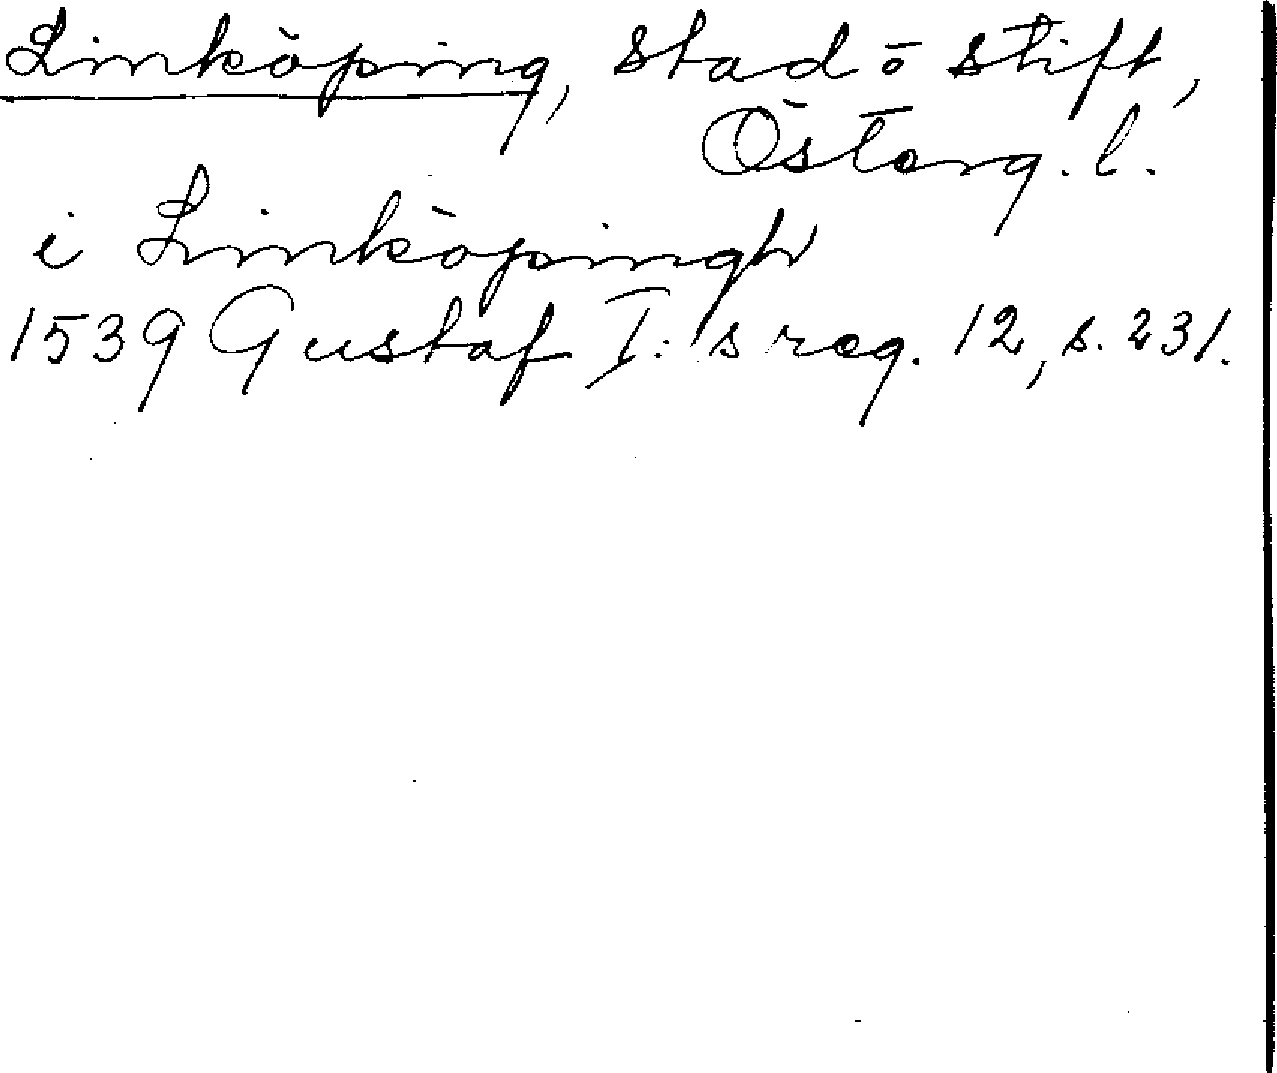 Linköping, stad o stift,
Österg. l.
i Linköpingh
1539 Gustaf I:s reg. 12, s. 231.